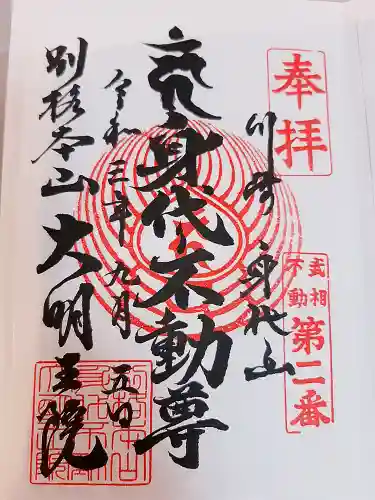 奉拝
武相
不動
第二番
川崎 身代山
身代不動尊
令和三年九月五日
別格本山大明王院